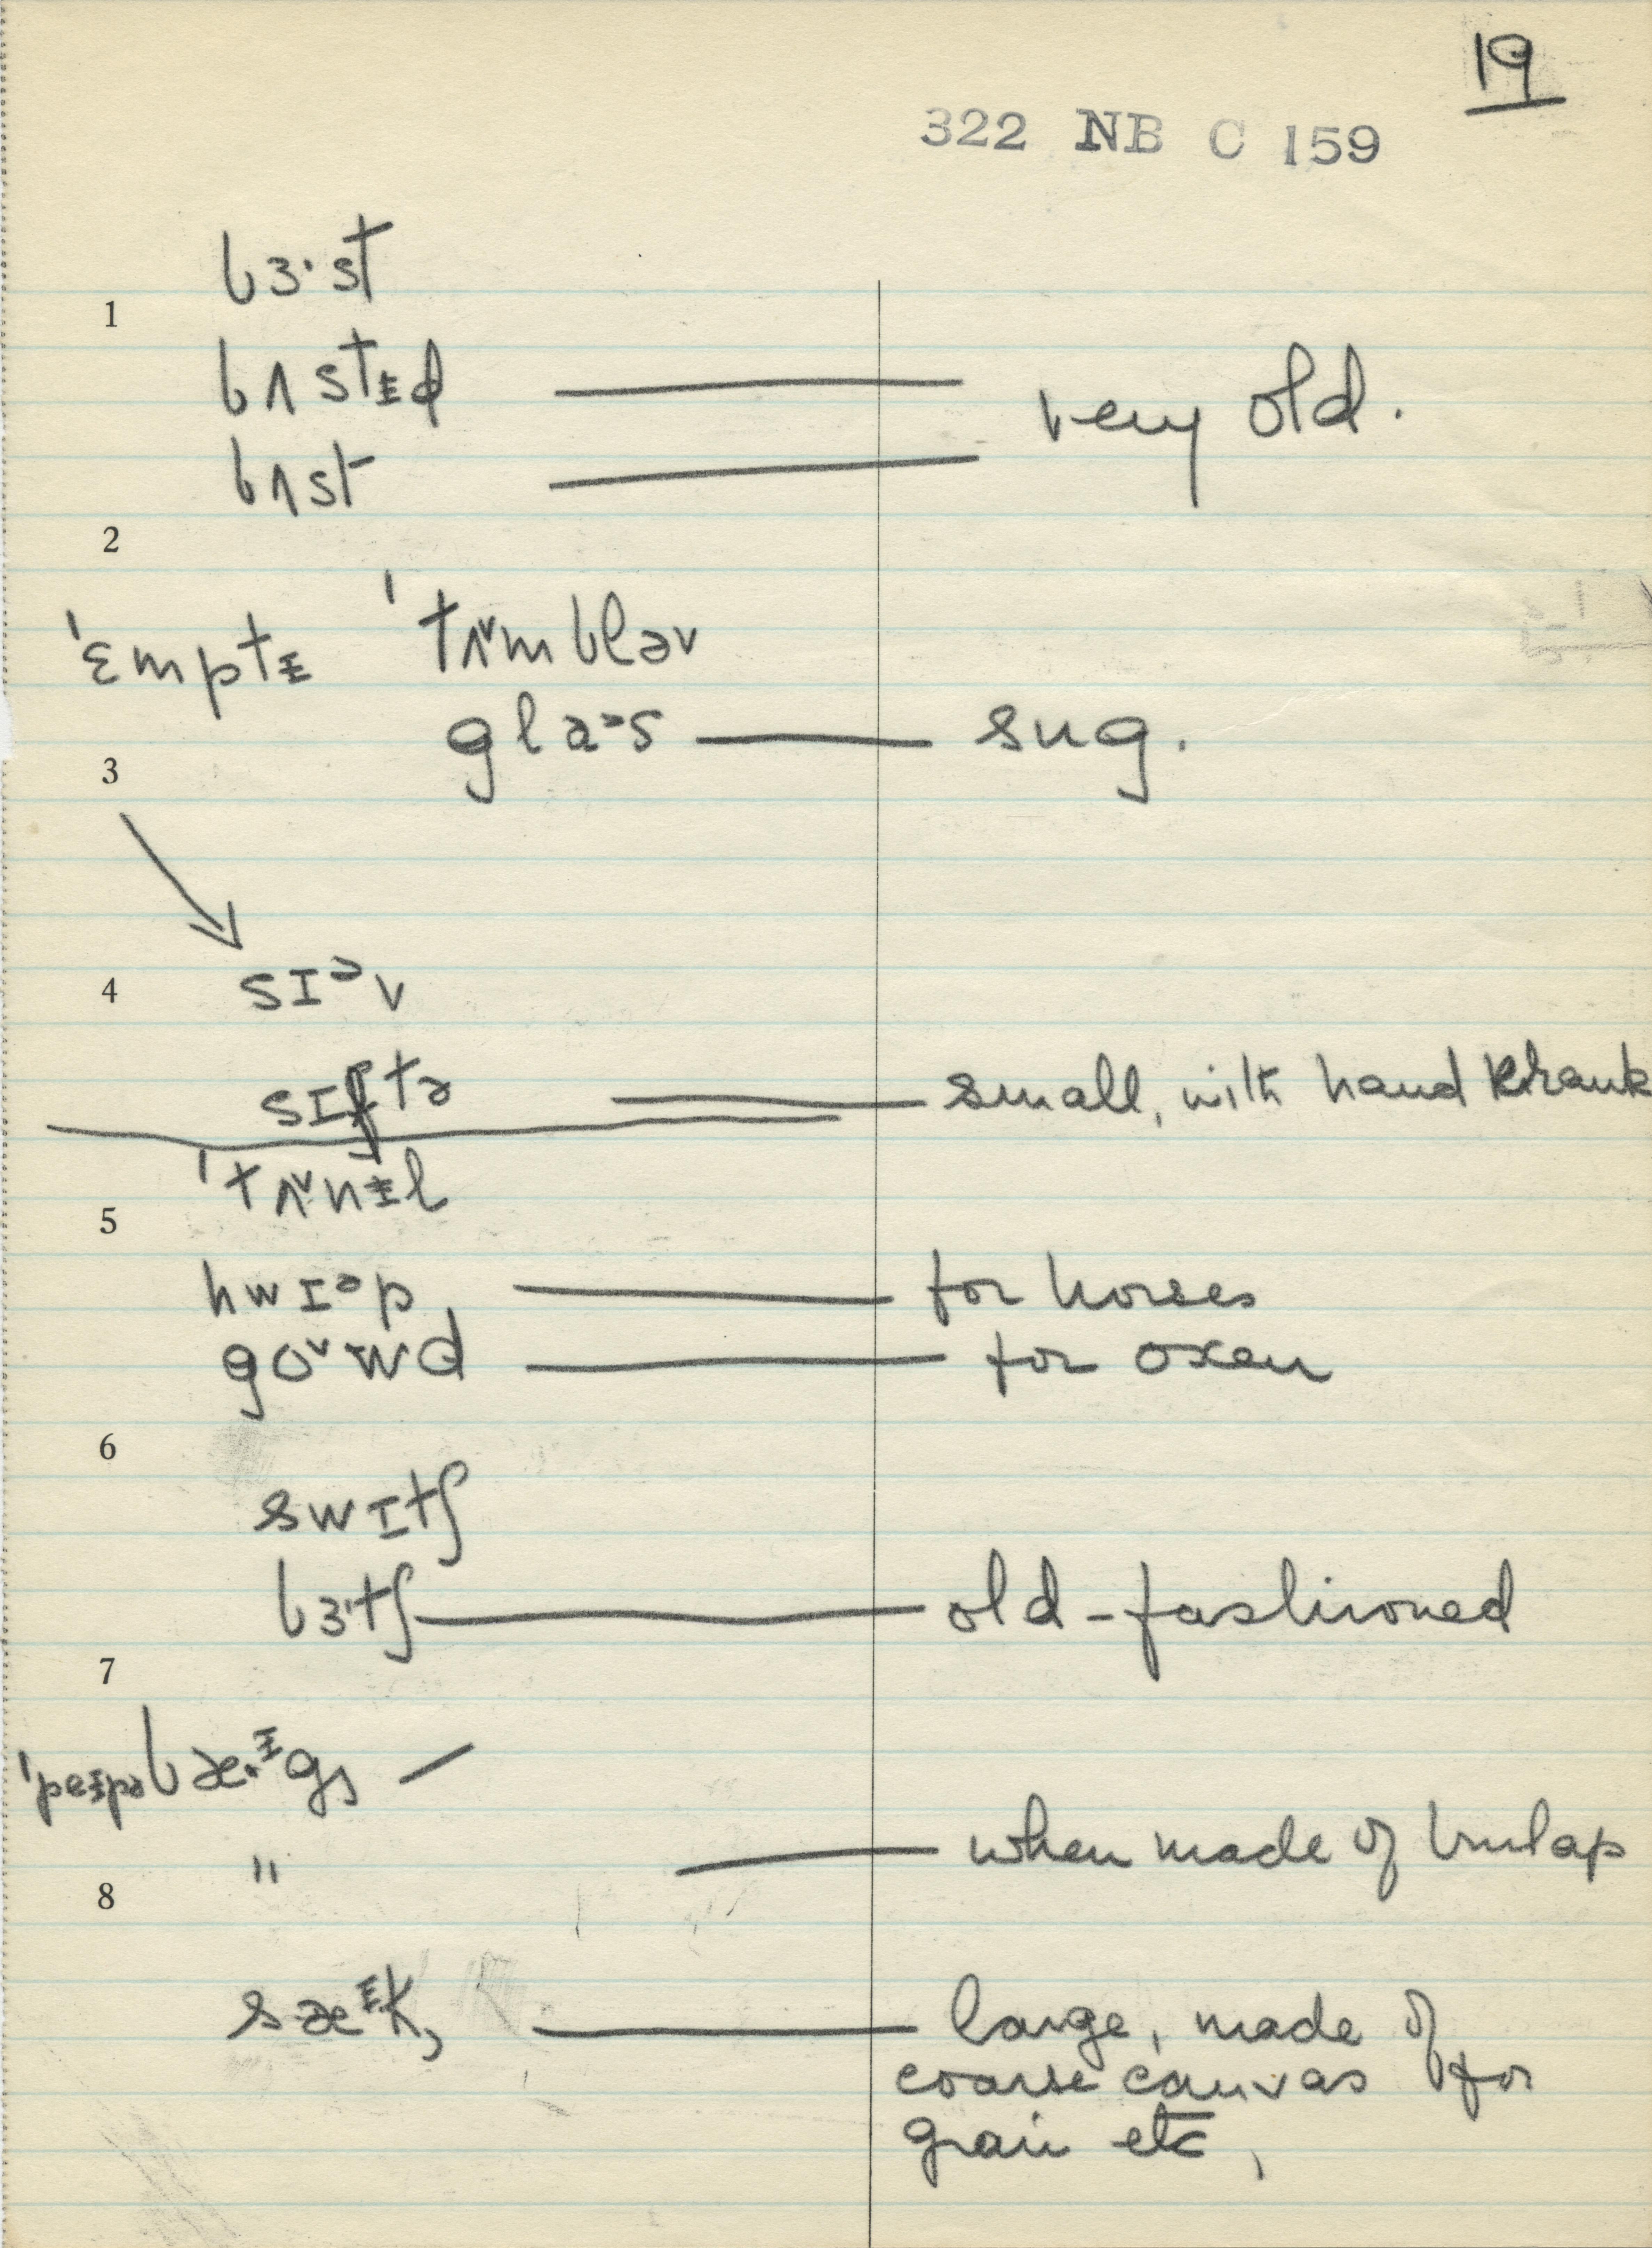 19
322 NB C 159
bɜ·st
1
bʌstᵻd — very old.
bʌst —
2
'ɛmptᵻ 'tʌ˅mbləv
glæᵊs — sug.
3
sɪᵊv
4
sɪftə — small, with hand krank
'tʌ˅nᵻl
5
hwɪᵊp — for horses
go˅wd — for oxen
6
swɪtʃ
bɜ·tʃ — old-fashioned
7
'peᵻpə bæ·ᵻg, —
" — when made of burlap
8
sæᵻk, — large, made of
coarse canvas for
grain etc,